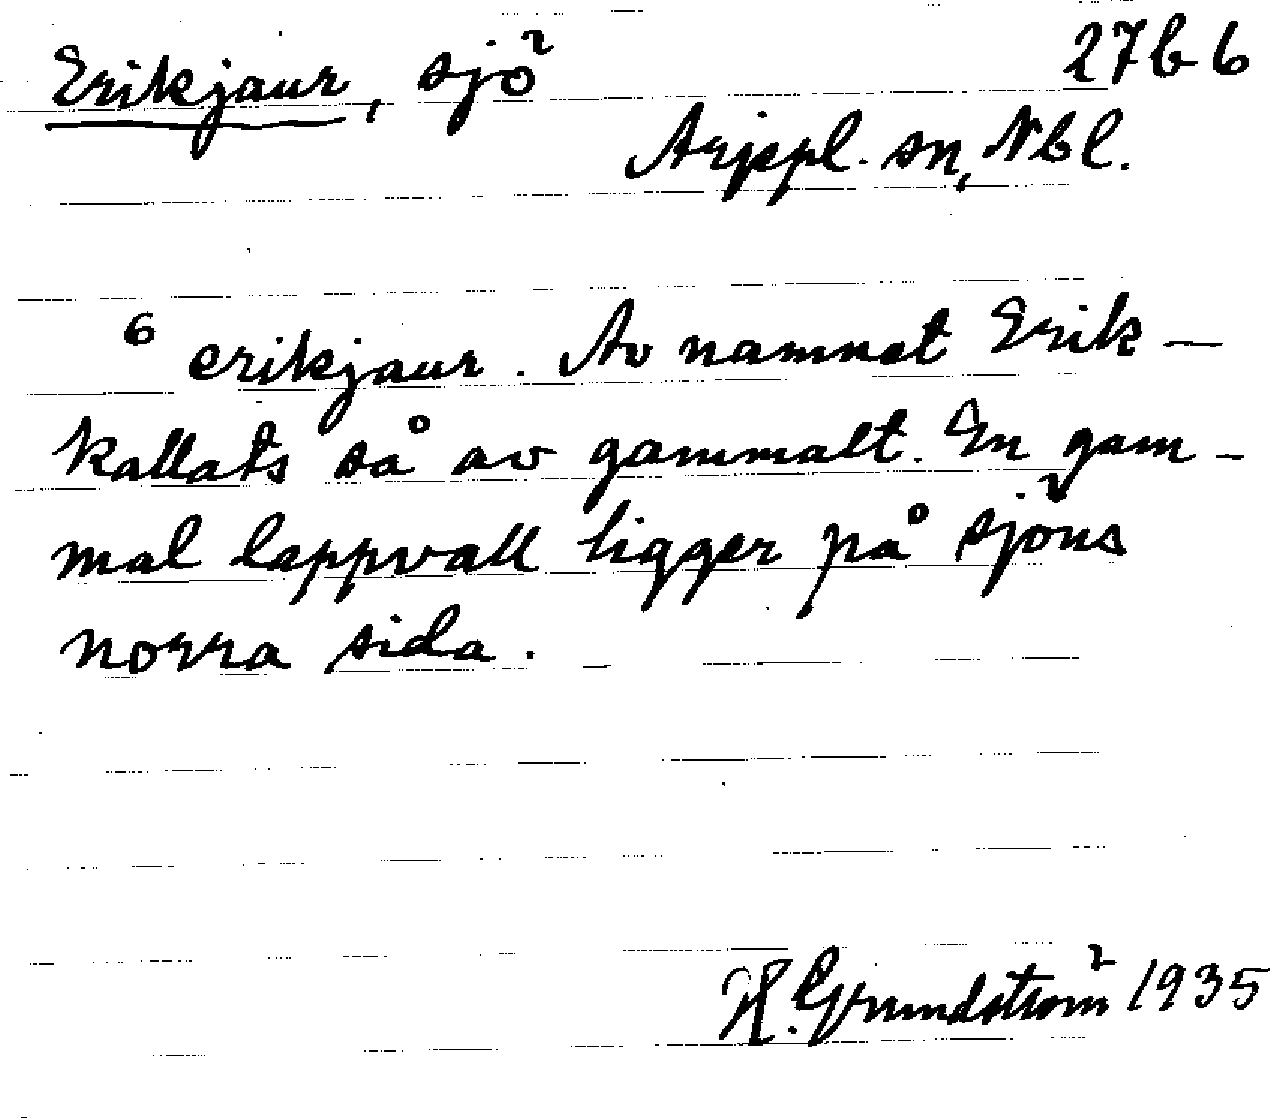 Erikjaur, sjö 27b6
Arjepl. sn, Nbl.
6 erikjaur. Av namnet Erik –
kallats så av gammalt. En gam-
mal lappvall ligger på sjöns
norra sida.
H. Grundström 1935